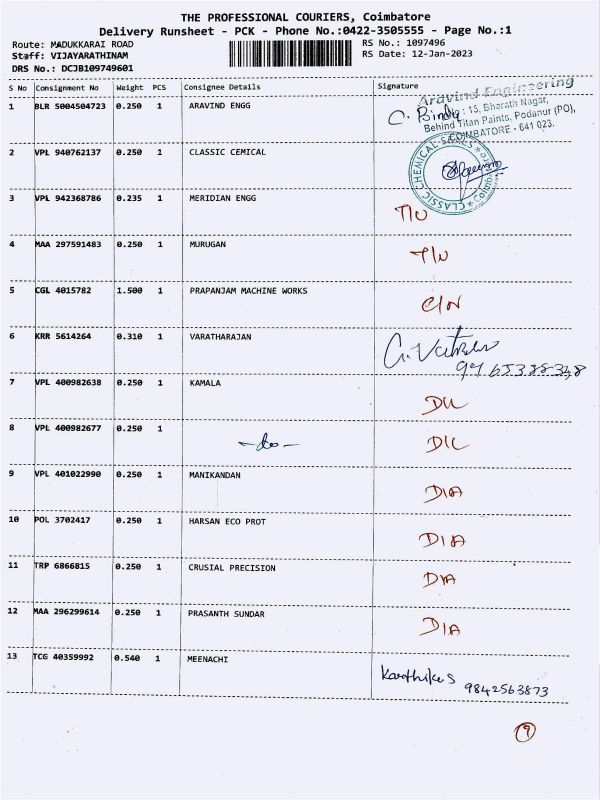 THE PROFESSIONAL COURIERS, Coimbatore
Delivery Runsheet - PCK - Phone No.:0422-3505555 - Page No.:1
Route: MADUKKARAI ROAD RS No.: 1097496
Staff: VIJAYARATHINAM RS Date: 12-Jan-2023
DRS No.: DCJB109749601
S No Consignment No Weight PCS Consignee Details Signature
Aravind Engineering
1 BLR 5004504723 0.250 1 ARAVIND ENGG C. Bindy 13, Bharath Nagar,
Behind Titan Paints, Podanur (PO),
COIMBATORE - 641 023.
2 VPL 940762137 0.250 1 CLASSIC CEMICAL CLASSIC CHEMICAL
3 VPL 942368786 0.235 1 MERIDIAN ENGG T/U
4 MAA 297591483 0.250 1 MURUGAN T/U
5 CGL 4015782 1.500 1 PRAPANJAM MACHINE WORKS C/N
6 KRR 5614264 0.310 1 VARATHARAJAN
7 VPL 400982638 0.250 1 KAMALA D/L
8 VPL 400982677 0.250 1 -do- D/L
9 VPL 401022990 0.250 1 MANIKANDAN D/A
10 POL 3702417 0.250 1 HARSAN ECO PROT D/A
11 TRP 6866815 0.250 1 CRUSIAL PRECISION D/A
12 MAA 296299614 0.250 1 PRASANTH SUNDAR D/A
13 TCG 40359992 0.540 1 MEENACHI Karthika S
9842563873
9